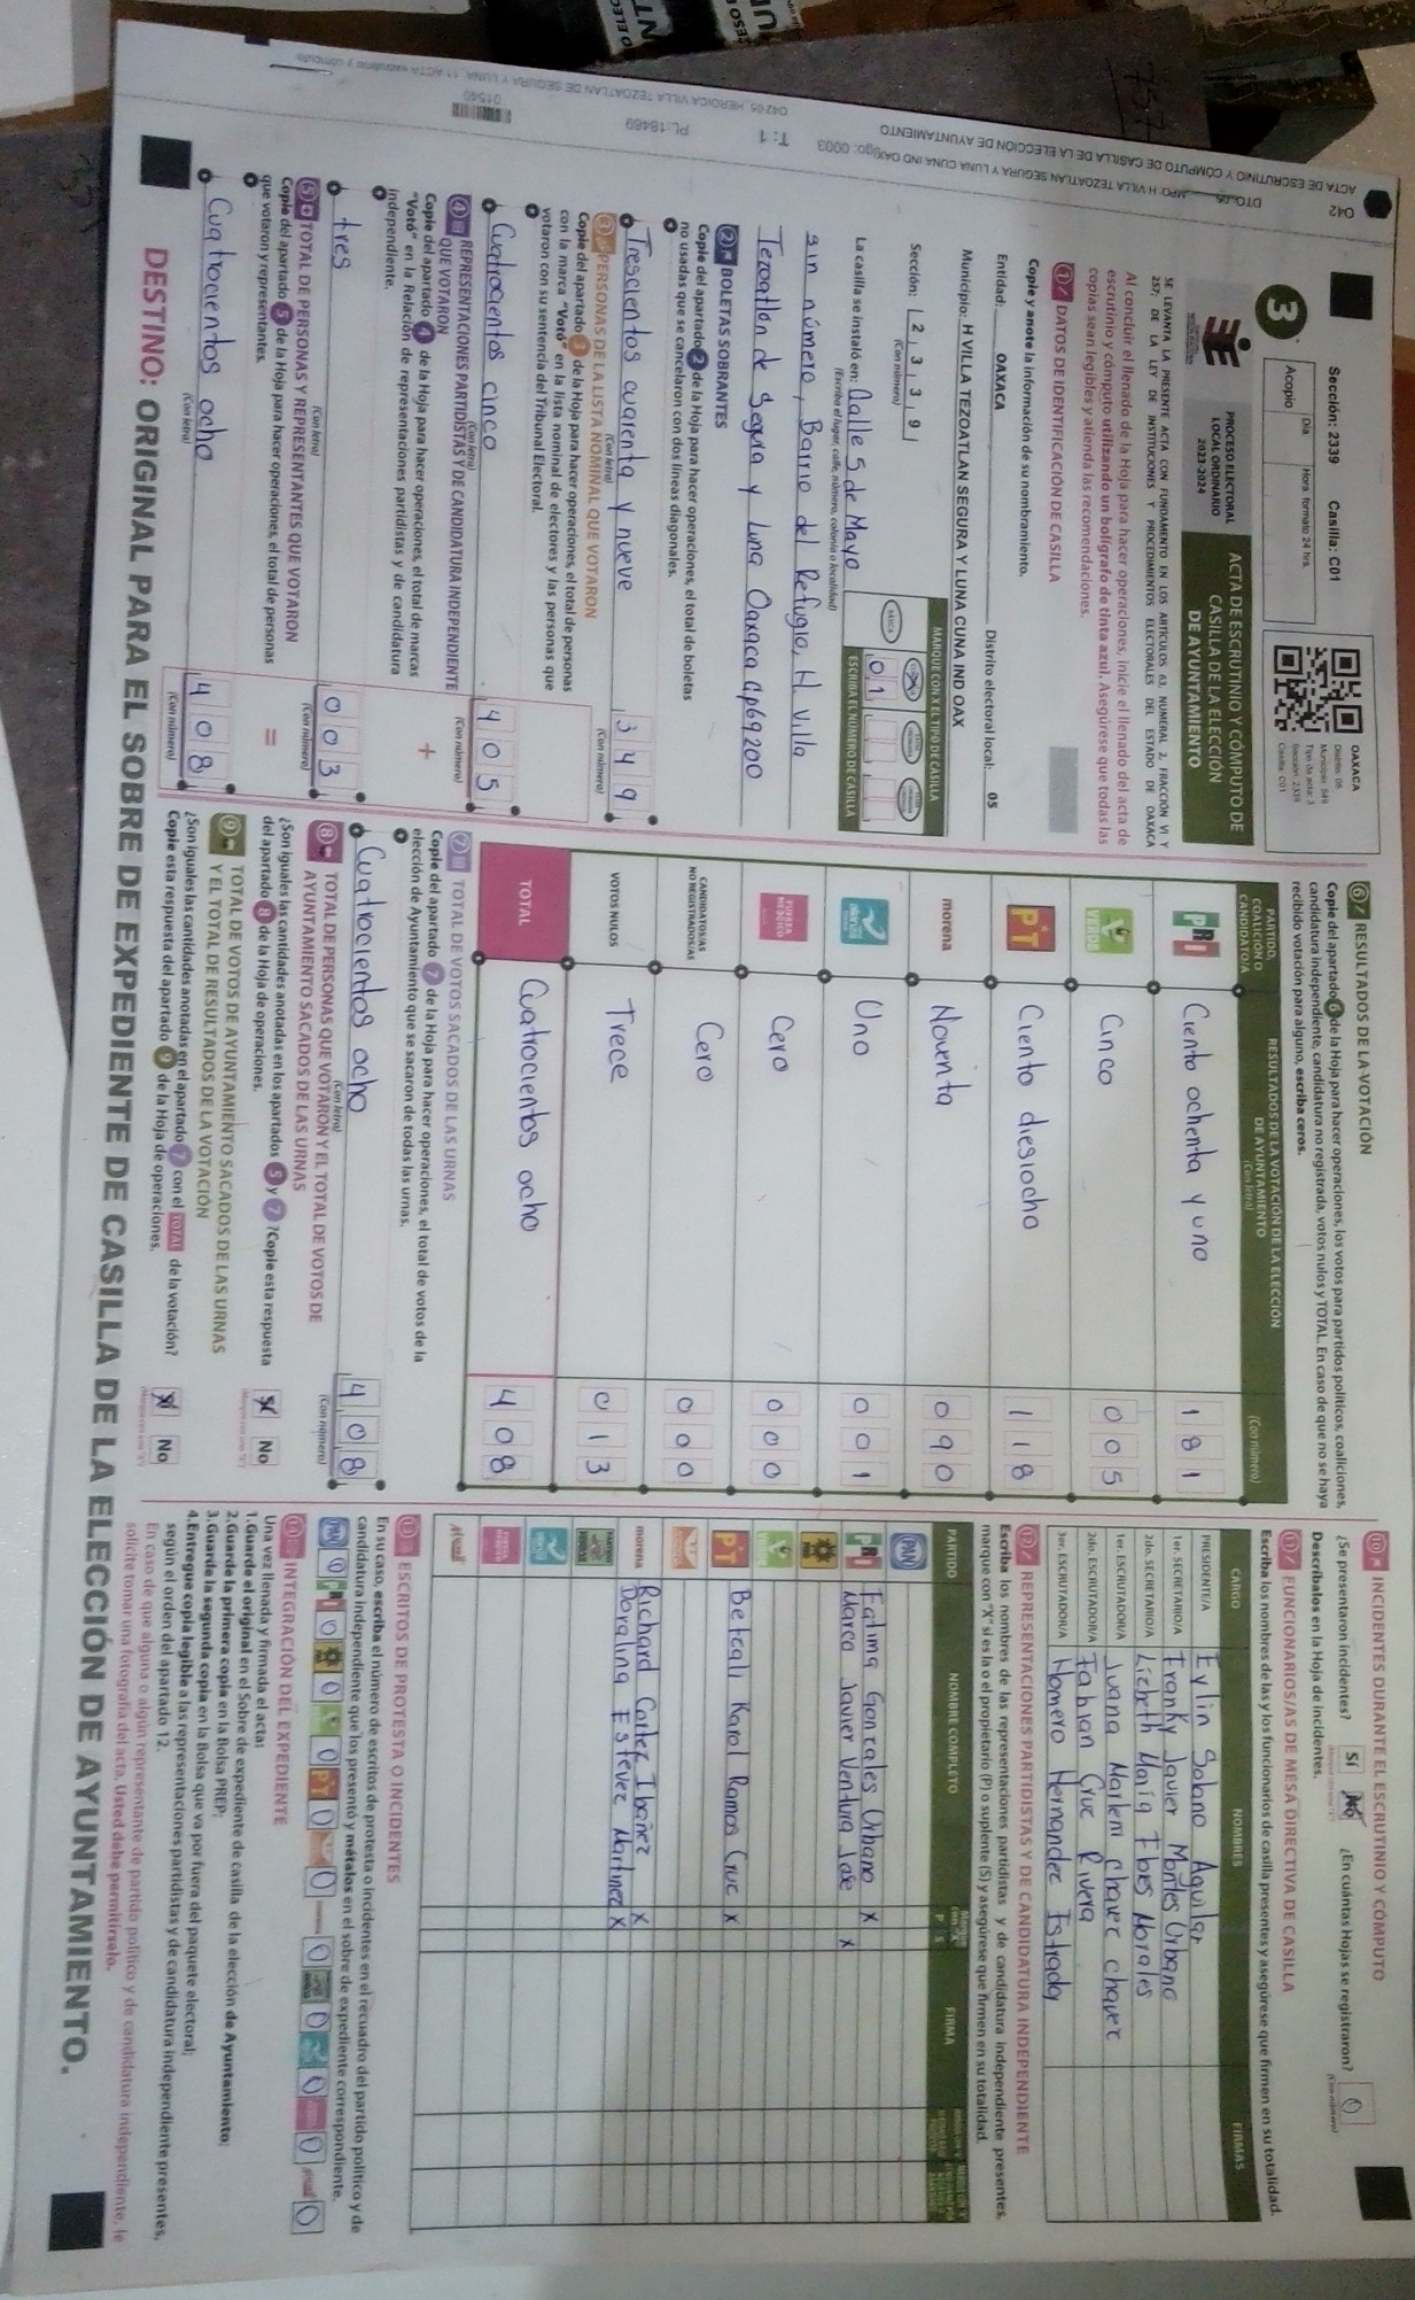 042
ACTA DE ESCRUTINIO Y CÓMPUTO DE CASILLA DE LA ELECCIÓN DE AYUNTAMIENTO
T: 1
PL: 18469
01540
Sección: 2339 Casilla: C01
3
Día
Hora formato 24 hrs.
Acopio
OAXACA
PROCESO ELECTORAL
LOCAL ORDINARIO
2023-2024
ACTA DE ESCRUTINIO Y CÓMPUTO DE
CASILLA DE LA ELECCIÓN
DE AYUNTAMIENTO
SE LEVANTA LA PRESENTE ACTA CON FUNDAMENTO EN LOS ARTÍCULOS 83, NUMERAL 2, FRACCIÓN VI Y
257; DE LA LEY DE INSTITUCIONES Y PROCEDIMIENTOS ELECTORALES DEL ESTADO DE OAXACA
Al concluir el llenado de la Hoja para hacer operaciones, inicie el llenado del acta de
escrutinio y cómputo utilizando un bolígrafo de tinta azul. Asegúrese que todas las
copias sean legibles y atienda las recomendaciones.
1 DATOS DE IDENTIFICACIÓN DE CASILLA
Copie y anote la información de su nombramiento.
Entidad: OAXACA Distrito electoral local: 05
Municipio: H VILLA TEZOATLAN SEGURA Y LUNA CUNA IND OAX
Sección: 2 3 3 9
(Con número)
MARQUE CON X EL TIPO DE CASILLA
ESCRIBA EL NÚMERO DE CASILLA
01
La casilla se instaló en: Calle 5 de Mayo
(Escriba el lugar, calle, número, colonia o localidad)
sin número, Barrio del Refugio, H. Villa
Tezoatlán de Segura y Luna Oaxaca cp69200
2 BOLETAS SOBRANTES
Copie del apartado 2 de la Hoja para hacer operaciones, el total de boletas
no usadas que se cancelaron con dos líneas diagonales.
Trescientos cuarenta y nueve 349
(Con letra) (Con número)
3 PERSONAS DE LA LISTA NOMINAL QUE VOTARON
Copie del apartado 3 de la Hoja para hacer operaciones, el total de personas
con la marca "Votó" en la lista nominal de electores y las personas que
votaron con su sentencia del Tribunal Electoral.
Cuatrocientos cinco 405
(Con letra) (Con número)
4 REPRESENTACIONES PARTIDISTAS Y DE CANDIDATURA INDEPENDIENTE
QUE VOTARON
Copie del apartado 4 de la Hoja para hacer operaciones, el total de marcas
"Votó" en la Relación de representaciones partidistas y de candidatura
independiente.
+
tres 003
(Con letra) (Con número)
5 TOTAL DE PERSONAS Y REPRESENTANTES QUE VOTARON
Copie del apartado 5 de la Hoja para hacer operaciones, el total de personas
que votaron y representantes.
=
Cuatrocientos ocho 408
(Con letra) (Con número)
6 RESULTADOS DE LA VOTACIÓN
Copie del apartado 6 de la Hoja para hacer operaciones, los votos para partidos políticos, coaliciones,
candidatura independiente, candidatura no registrada, votos nulos y TOTAL. En caso de que no se haya
recibido votación para alguno, escriba ceros.
PARTIDO,
COALICIÓN O
CANDIDATO/A
RESULTADOS DE LA VOTACIÓN DE LA ELECCIÓN
DE AYUNTAMIENTO
(Con letra)
(Con número)
PRI Ciento ochenta y uno 181
VERDE Cinco 005
PT Ciento diesiocho 118
morena Noventa 090
Uno 001
Cero 000
CANDIDATOS/AS
NO REGISTRADOS/AS
Cero 000
VOTOS NULOS Trece 013
TOTAL Cuatrocientos ocho 408
7 TOTAL DE VOTOS SACADOS DE LAS URNAS
Copie del apartado 7 de la Hoja para hacer operaciones, el total de votos de la
elección de Ayuntamiento que se sacaron de todas las urnas.
Cuatrocientos ocho 408
(Con letra) (Con número)
8 TOTAL DE PERSONAS QUE VOTARON Y EL TOTAL DE VOTOS DE
AYUNTAMIENTO SACADOS DE LAS URNAS
¿Son iguales las cantidades anotadas en los apartados 5 y 7? Copie esta respuesta
del apartado 8 de la Hoja de operaciones.
Sí No
9 TOTAL DE VOTOS DE AYUNTAMIENTO SACADOS DE LAS URNAS
Y EL TOTAL DE RESULTADOS DE LA VOTACIÓN
¿Son iguales las cantidades anotadas en el apartado 7 con el TOTAL de la votación?
Copie esta respuesta del apartado 9 de la Hoja de operaciones.
Sí No
10 INCIDENTES DURANTE EL ESCRUTINIO Y CÓMPUTO
¿Se presentaron incidentes? Sí No ¿En cuántas Hojas se registraron? 0
Descríbalos en la Hoja de incidentes.
11 FUNCIONARIOS/AS DE MESA DIRECTIVA DE CASILLA
Escriba los nombres de las y los funcionarios de casilla presentes y asegúrese que firmen en su totalidad.
CARGO NOMBRES FIRMAS
PRESIDENTE/A Eylin Solano Aguilar
1er. SECRETARIO/A Franky Javier Montes Urbano
2do. SECRETARIO/A Lizbeth María Flores Morales
1er. ESCRUTADOR/A Juana Marlem Chavez Chavez
2do. ESCRUTADOR/A Fabian Cruz Rivera
3er. ESCRUTADOR/A Homero Hernandez Estrada
12 REPRESENTACIONES PARTIDISTAS Y DE CANDIDATURA INDEPENDIENTE
Escriba los nombres de las representaciones partidistas y de candidatura independiente presentes,
marque con "X" si es la o el propietario (P) o suplente (S) y asegúrese que firmen en su totalidad.
PARTIDO NOMBRE COMPLETO P S FIRMA
PAN
PRI Fatima Gonzales Urbano X
Marco Javier Ventura Jose X
PT Betzali Karol Ramos Cruz X
morena Richard Cortez Ibañez X
Doralina Estevez Martinez X
13 ESCRITOS DE PROTESTA O INCIDENTES
En su caso, escriba el número de escritos de protesta o incidentes en el recuadro del partido político y de
candidatura independiente que los presentó y métalos en el sobre de expediente correspondiente.
PAN 0 PRI 0 0 0 PT 0 0 0 0 0 0 0
14 INTEGRACIÓN DEL EXPEDIENTE
Una vez llenada y firmada el acta:
1. Guarde el original en el Sobre de expediente de casilla de la elección de Ayuntamiento;
2. Guarde la primera copia en la Bolsa PREP;
3. Guarde la segunda copia en la Bolsa que va por fuera del paquete electoral;
4. Entregue copia legible a las representaciones partidistas y de candidatura independiente presentes,
según el orden del apartado 12.
En caso de que alguna o algún representante de partido político y de candidatura independiente, le
solicite tomar una fotografía del acta, Usted debe permitírselo.
DESTINO: ORIGINAL PARA EL SOBRE DE EXPEDIENTE DE CASILLA DE LA ELECCIÓN DE AYUNTAMIENTO.